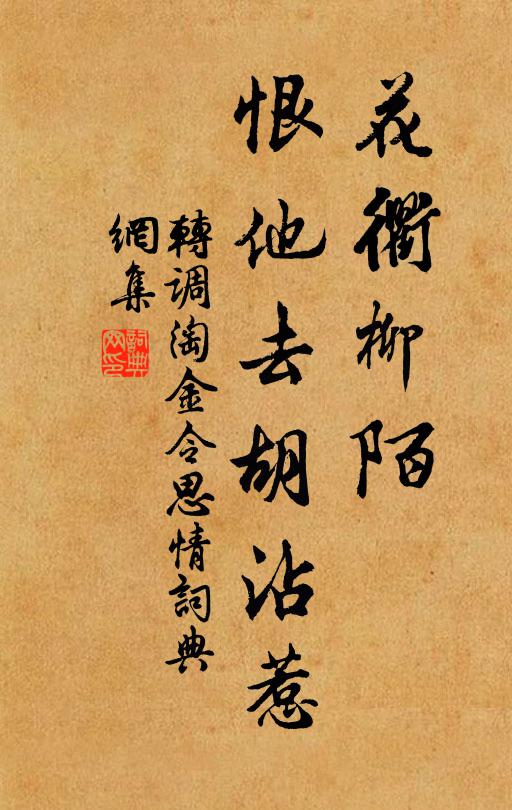 花衢柳陌
恨他去胡沾惹
轉调淘金令思情詞典
網集
詞典
网印